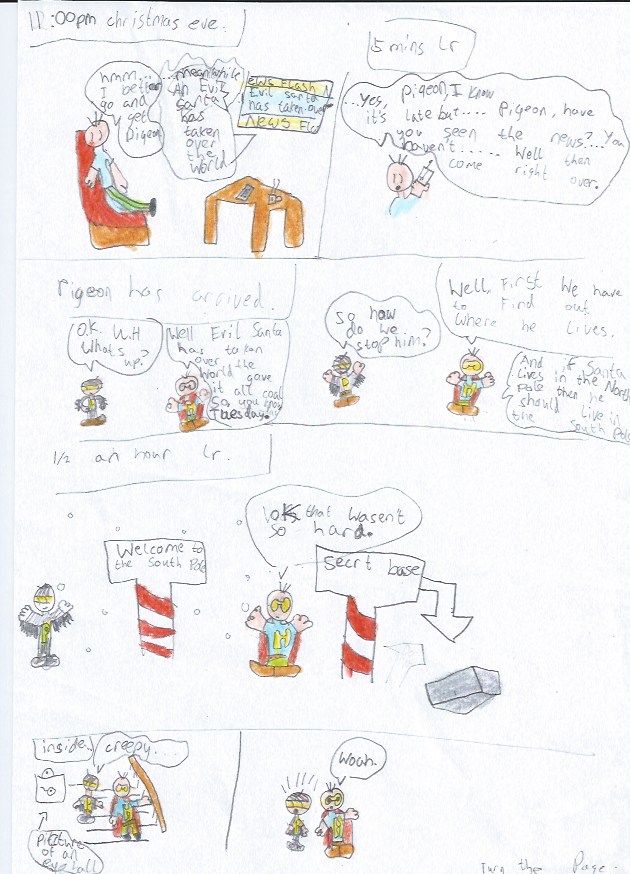 11:00pm christmas eve.
hmm....
I better
go and
get
Pigeon
...meanwhile
An Evil
santa
has
taken
over
the
world.
ews Flash N
Evil santa
has taken over
News Fla
5 mins lr
Pigeon, I know
...Yes,
it's late but.... Pigeon, have
you seen the news?... You
haven't...... Well then
come right over.
Pigeon has arrived.
O.K. W.H
Whats
up?
Well Evil Santa
has takan
over the
World gave
it all coal
So, you know
Tuesday.
So how
do we
stop him?
Well, First We have
to Find out
where he lives.
And if Santa
Lives in the North
Pole then he
should live in
the South Pole
1/2 an hour lr.
Welcome to
the South Pole
OK that wasen't
so hard.
H
secrt base
inside.
creepy...
Picture
of an
eye ball
Woah.
Turn the Page.